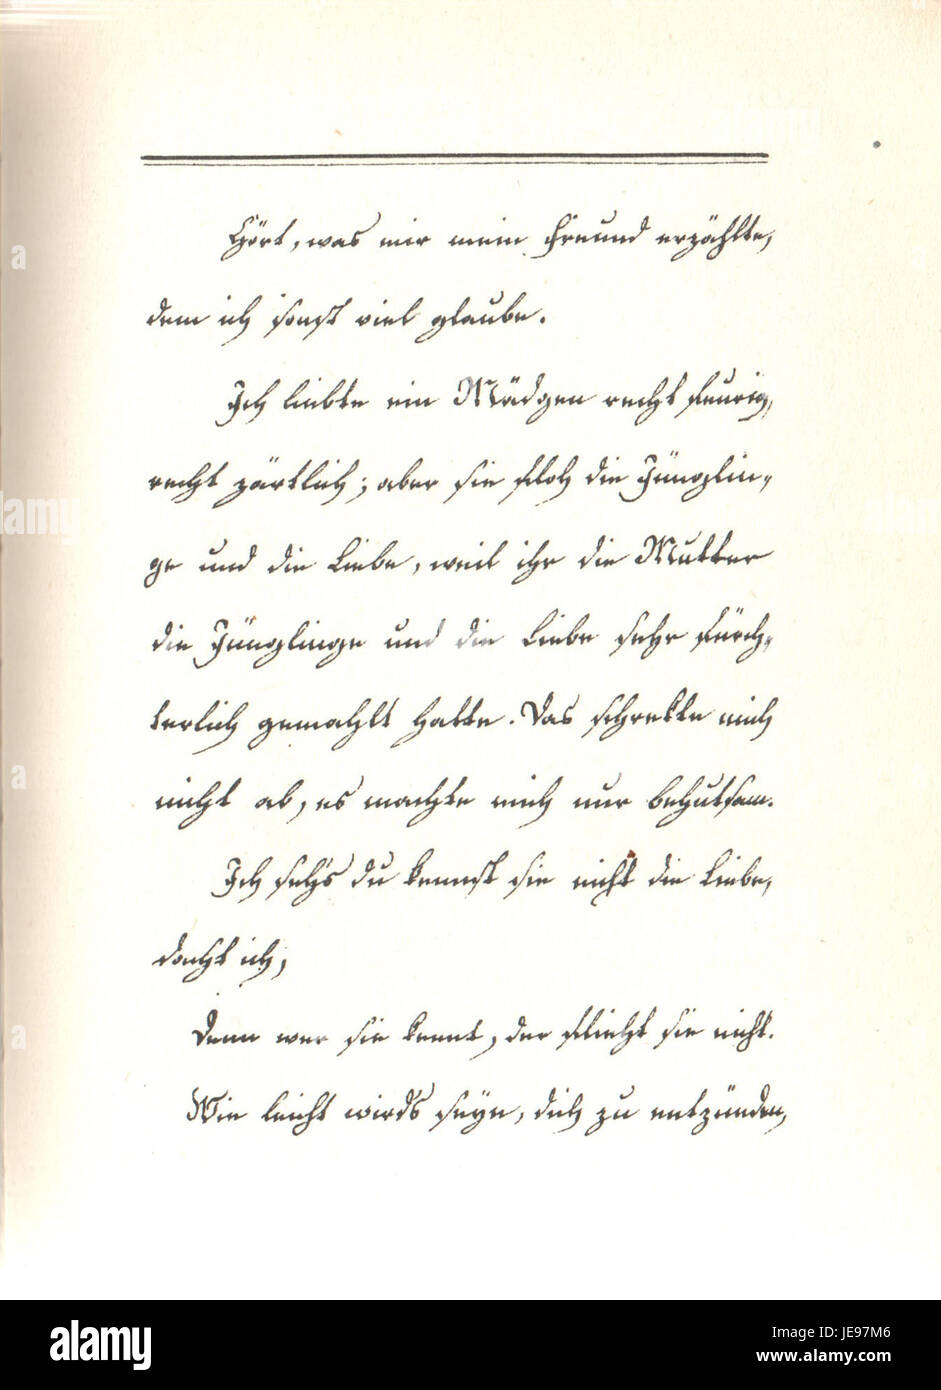 Hört, was mir mein Freund erzählte,
dem ich sonst viel glaube.
Ich liebte ein Mädgen recht feurig,
recht zärtlich; aber sie floh die Jünglin-
ge und die Liebe, weil ihr die Mutter
die Jünglinge und die Liebe sehr fürch-
terlich gemahlt hatte. Das schrekte mich
nicht ab, es machte mich nur behutsam.
Ich seh's du kennst sie nicht die Liebe,
dacht ich,
Denn wer sie kennt, der flieht sie nicht.
Wie leicht wird's seyn, dich zu entzünden,
a
alamy
a
a
alamy
Image ID: JE97M6
www.alamy.com